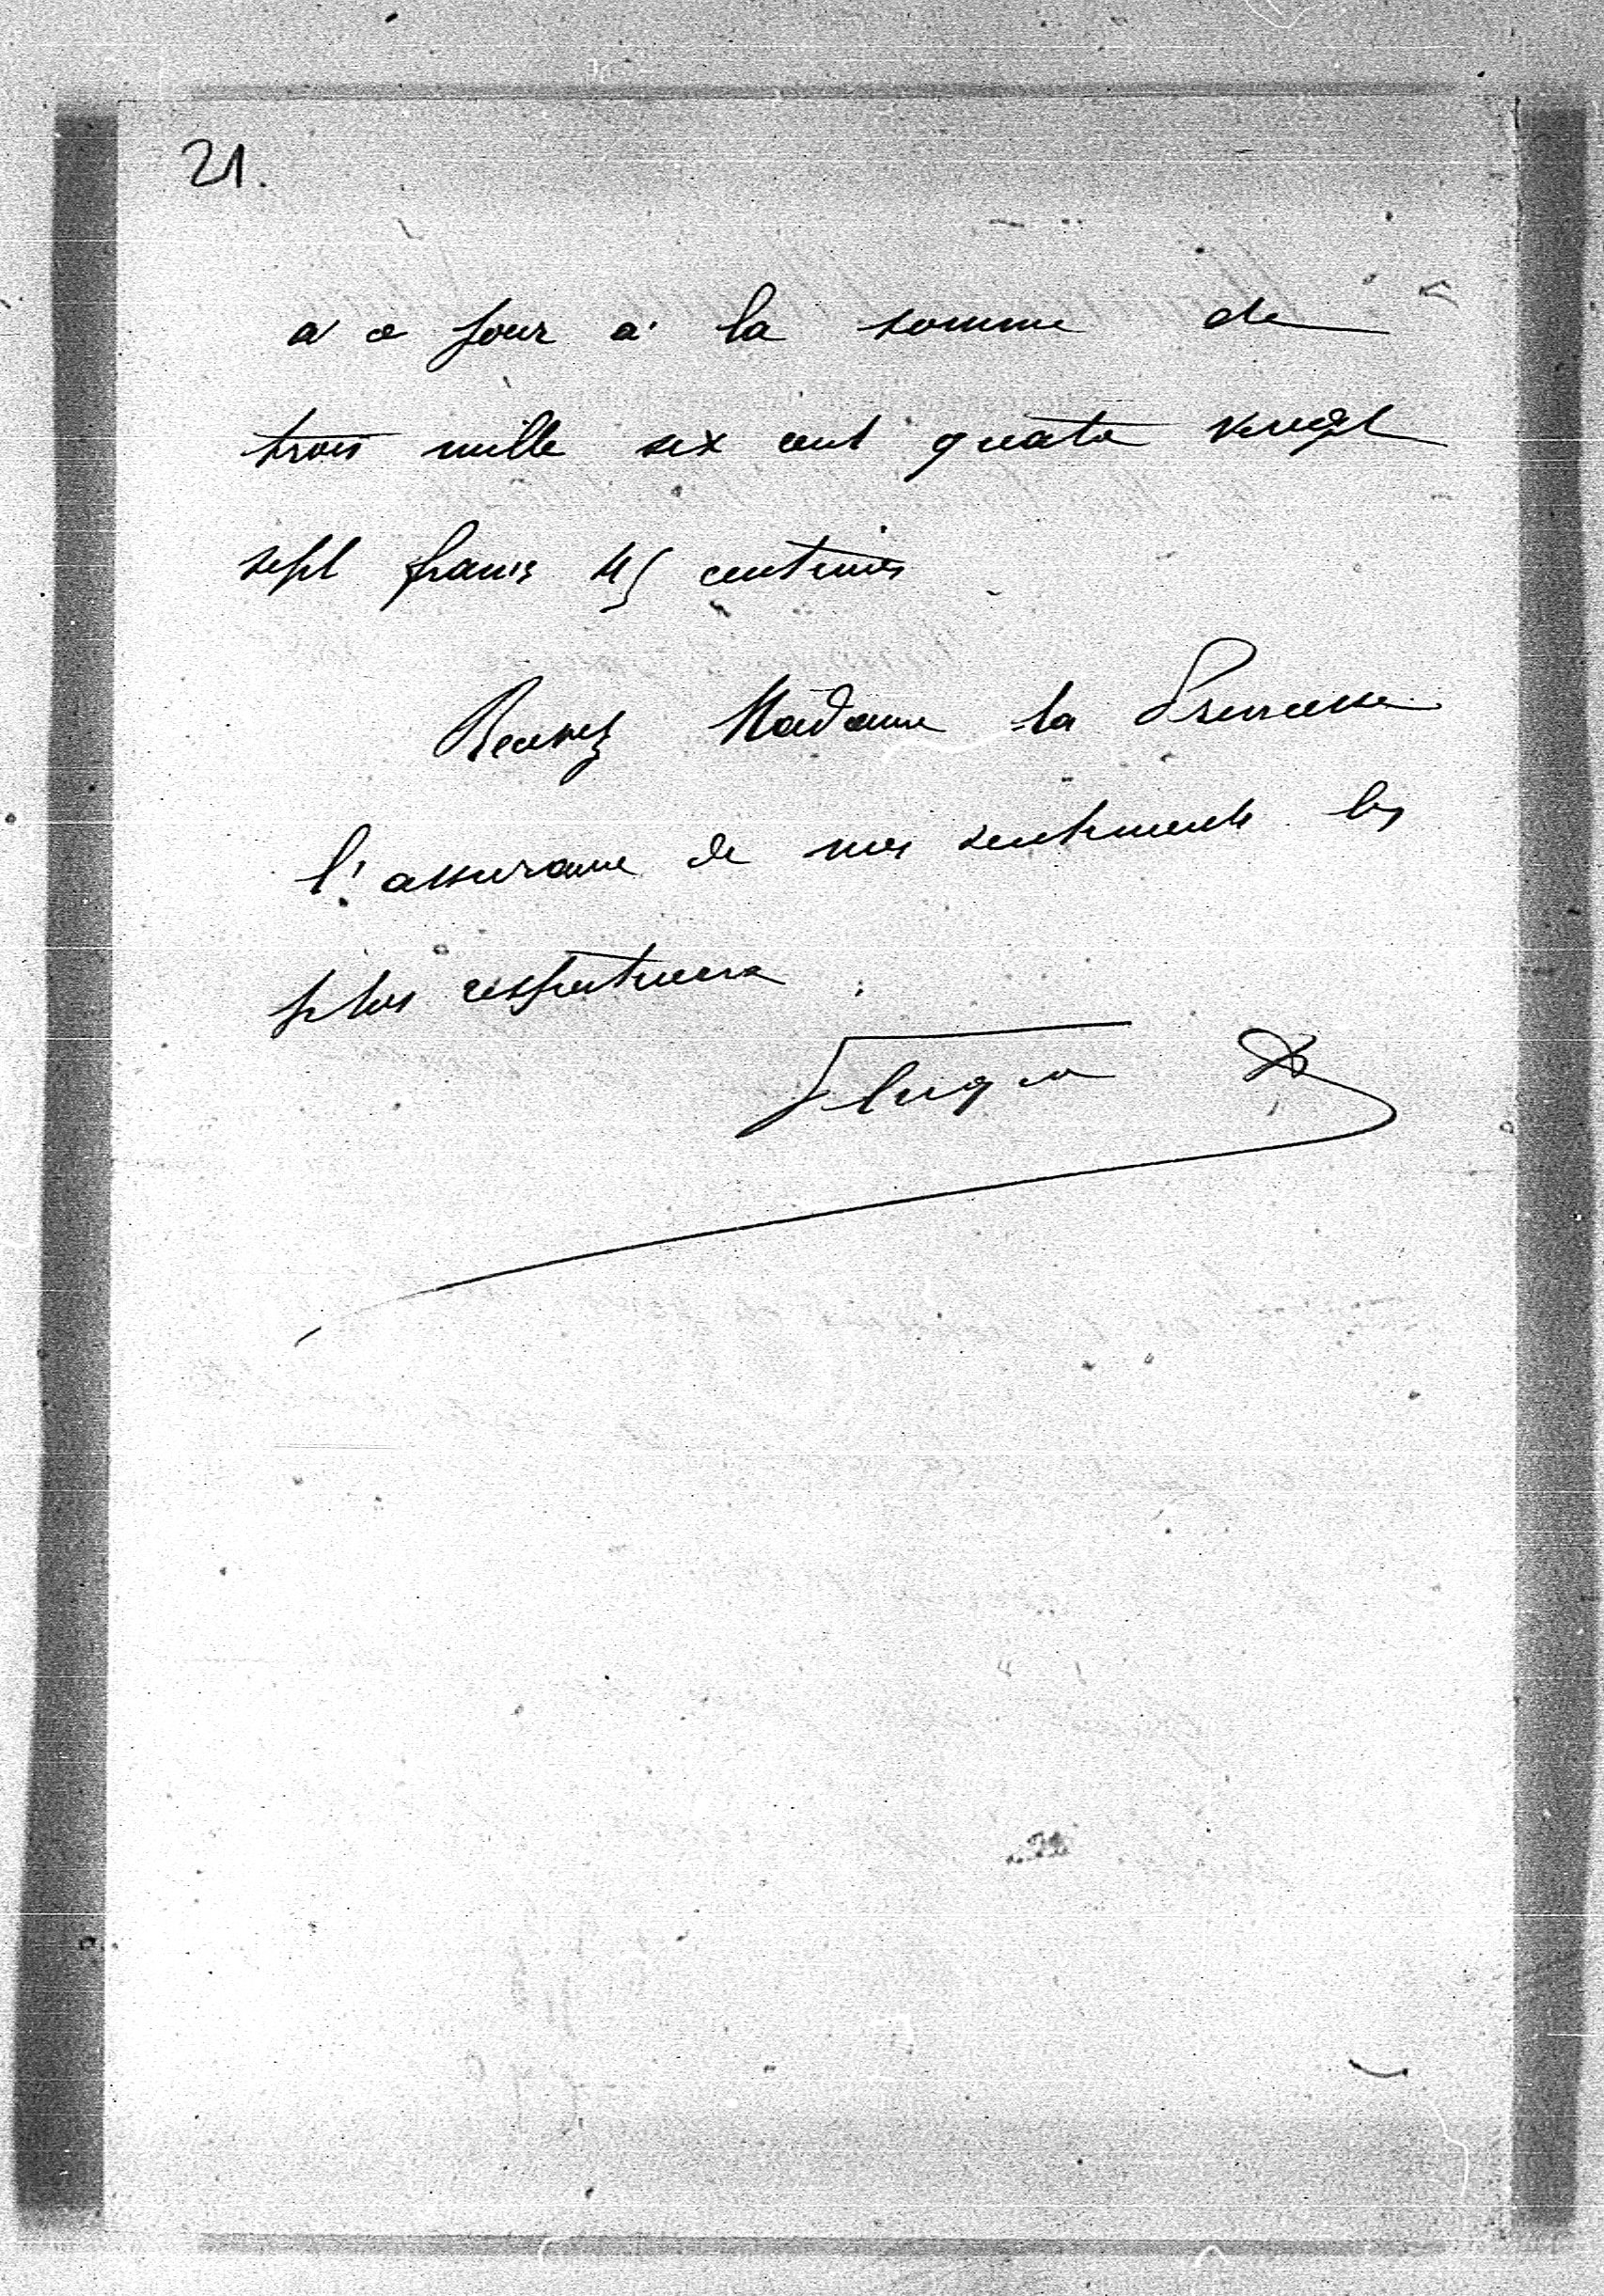 21.
à ce jour à la somme de
trois mille six cent quatre vingt
sept francs 45 centimes
Recevez Madame la Princesse
l'assurance de mes sentiments les
plus respectueux